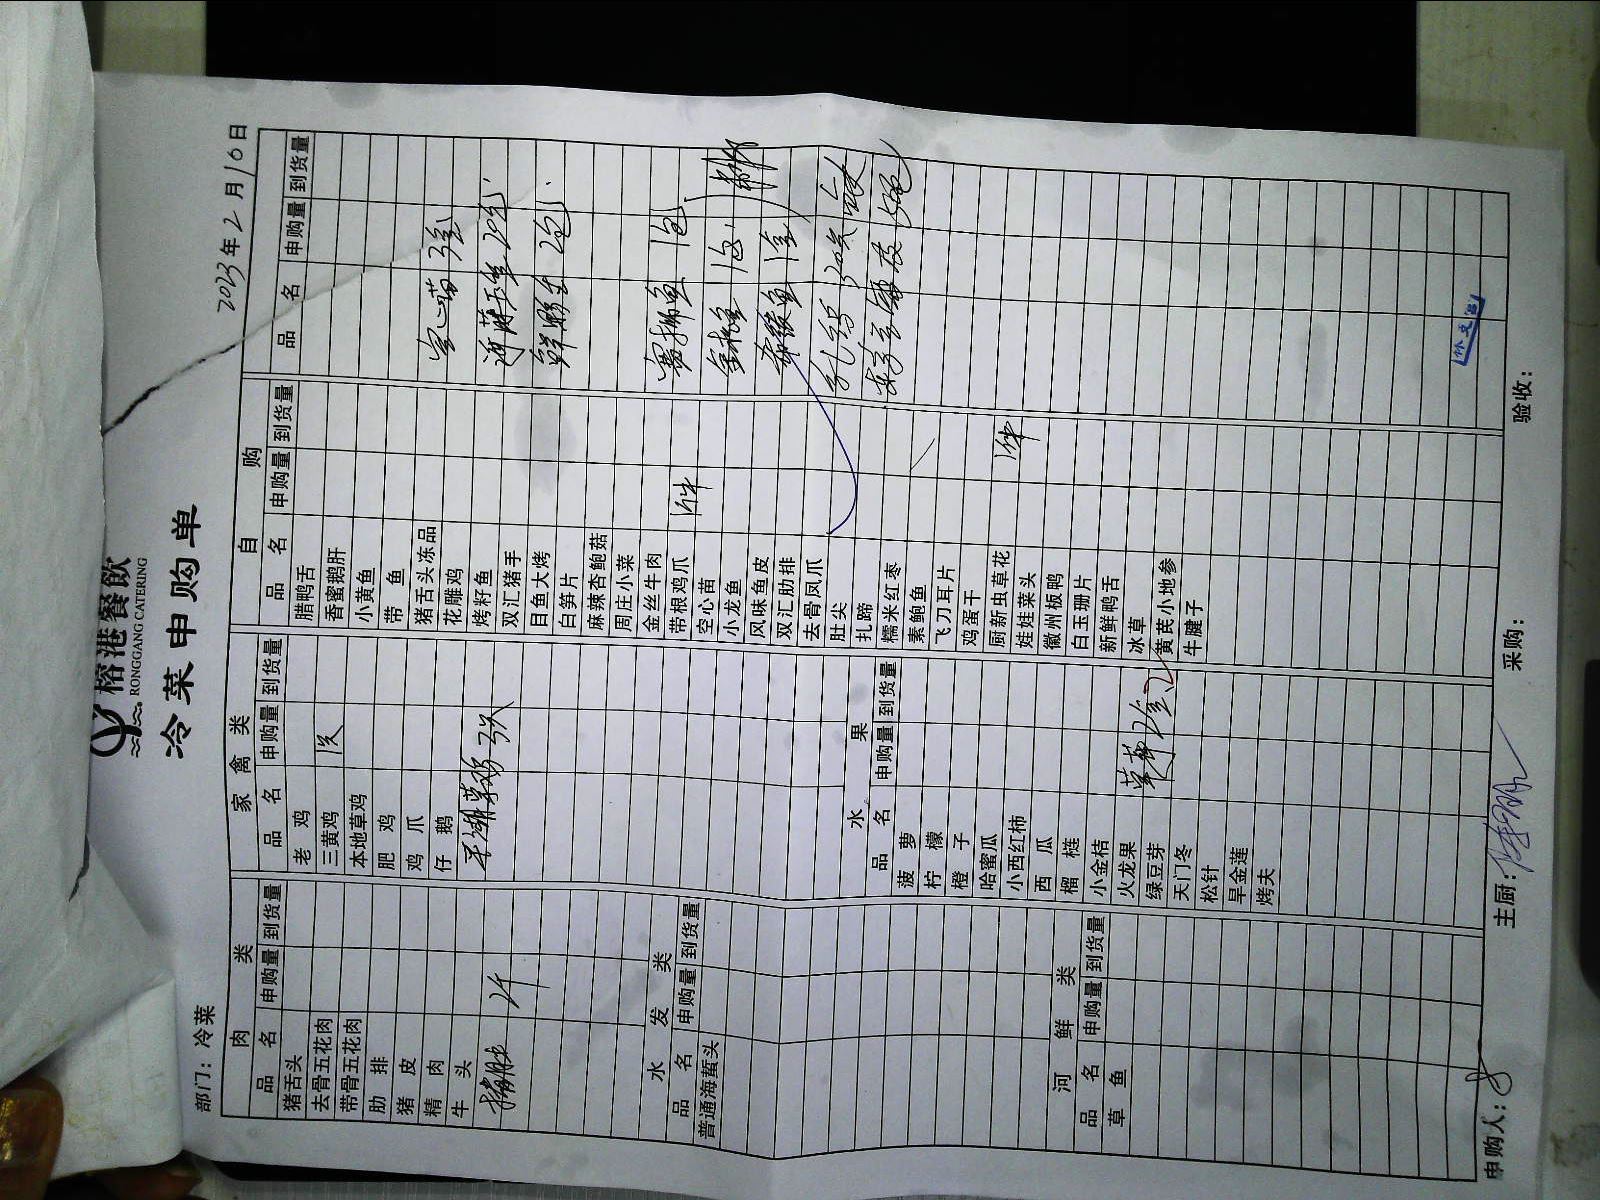 榕港餐飲
RONGGANG CATERING
冷菜申购单
部门：冷菜
2023年2月10日
肉类
品名 申购量 到货量
猪舌头
去骨五花肉
带骨五花肉
肋排
猪皮
精肉
牛头
2斤
水发类
品名 申购量 到货量
普通海蜇头
河鲜类
品名 申购量 到货量
草鱼
家禽类
品名 申购量 到货量
老鸡
三黄鸡 1只
本地草鸡
肥鸡
鸡爪
仔鹅
水果
品名 申购量 到货量
菠萝
柠檬
橙子
哈蜜瓜
小西红柿
西瓜
榴梿
小金桔
火龙果
绿豆芽
天门冬
松针
旱金莲
烤夫
自购
品名 申购量 到货量
腊鸭舌
香蜜鹅肝
小黄鱼
带鱼
猪舌头冻品
花雕鸡
烤籽鱼
双汇猪手
目鱼大烤
白笋片
麻辣杏鲍菇
周庄小菜
金丝牛肉
带根鸡爪 1件
空心苗
小龙鱼
风味鱼皮
双汇肋排
去骨凤爪
肚尖
扎蹄
糯米红枣
素鲍鱼
飞刀耳片
鸡蛋干
厨新虫草花 1件
娃娃菜头
徽州板鸭
白玉珊片
新鲜鸭舌
冰草
黄芪小地参
牛腱子
品名 申购量 到货量
空心苗 3盒
2包
1包
1包
申购人：
主厨：
采购：
验收：